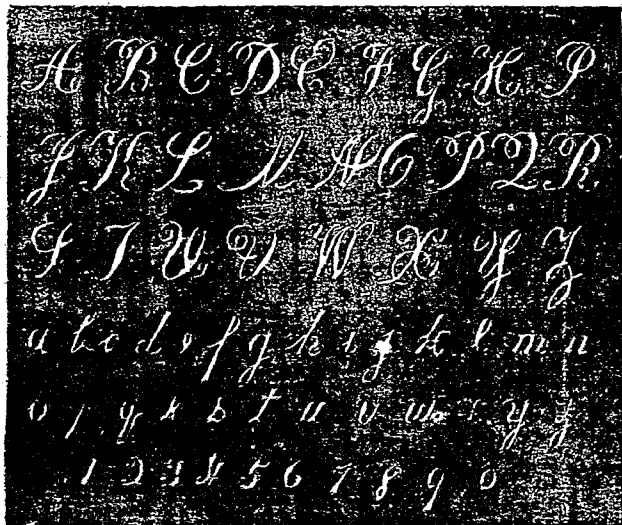 A B C D E F G H I
J K L M N O P Q R
S T U V W X Y Z
a b c d e f g h i j k l m n
o p q r s t u v w x y z
1 2 3 4 5 6 7 8 9 0